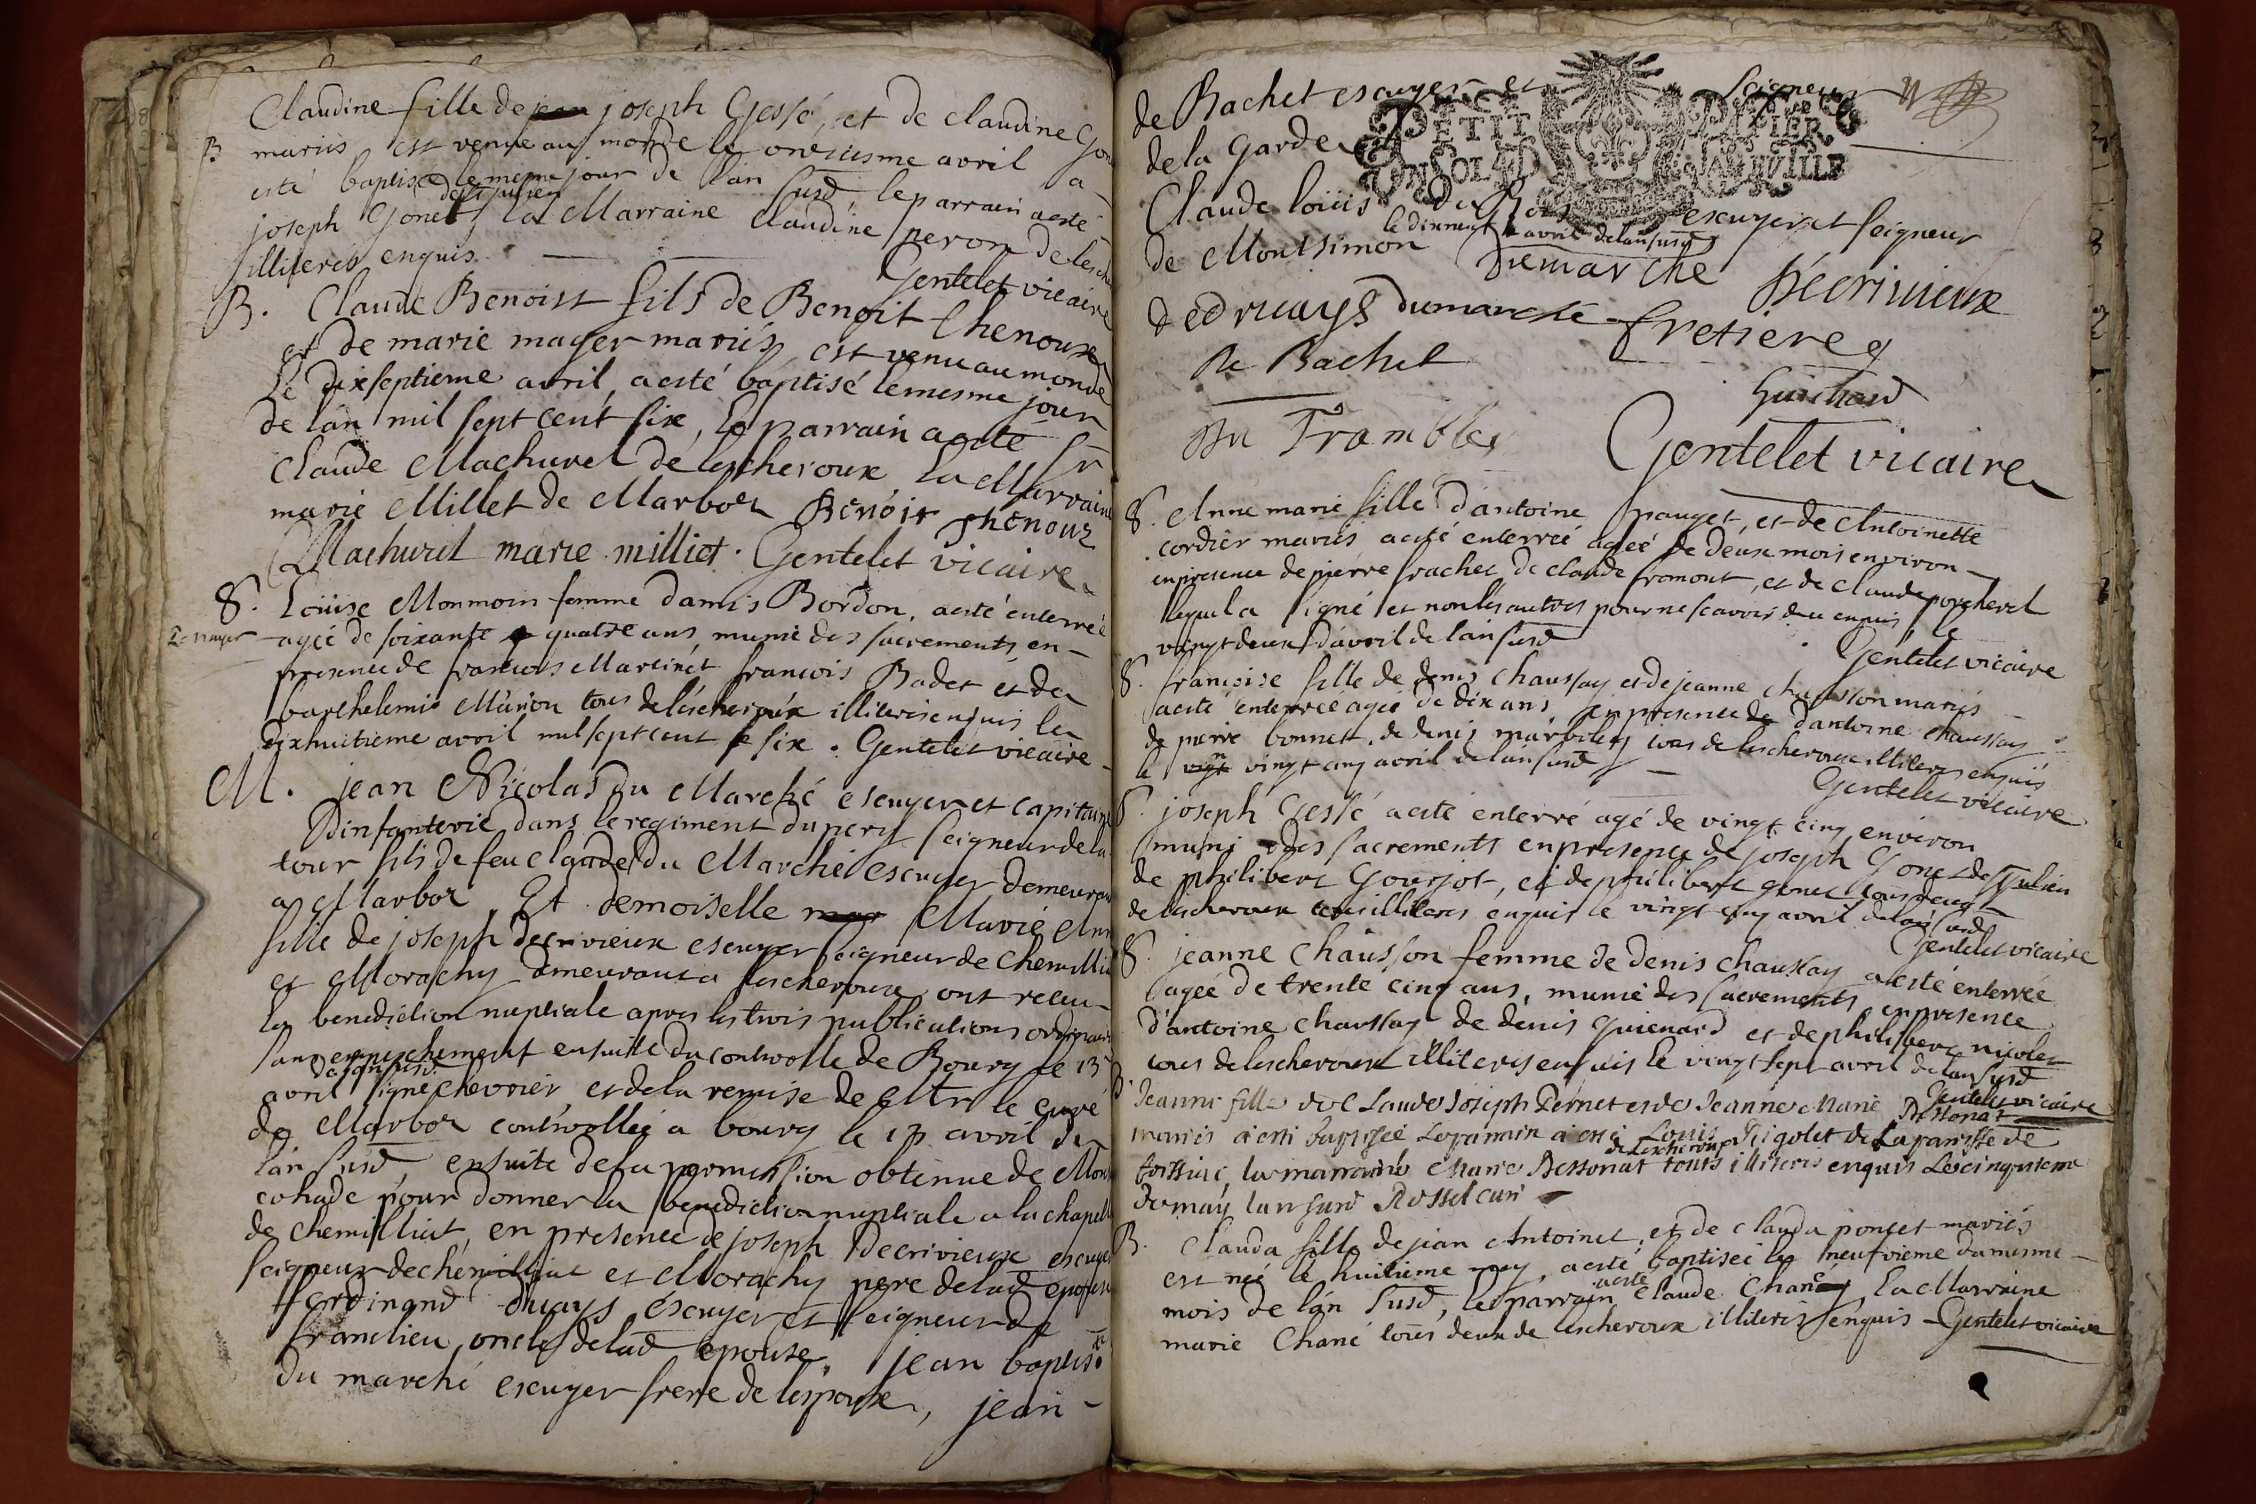 Claudine fille de jean joseph Gessé, et de claudine Gon
B mariés est venue au monde le onziesme avril a
esté baptisé le mesme jour de l'an susd le parrain a esté
joseph Gonet de st julien la Marraine Claudine peron de lesche
illiteres enquis.
Gentelet vicaire
B. Claude Benoist fils de Benoit Chenoux
et de marie mayer mariés, est venu au monde
le dixseptieme avril, a esté baptisé le mesme jour
de l'an mil sept cent six, le parrain a esté sr
Claude Machurel de lescheroux la Marraine
marie Millet de Marboz Benoit Thenoux
Machuril marie milliet. Gentelet vicaire
S. Loüise Monmoin femme damis Bordon, a esté enterrée
agée de soixante quatre ans munie des sacrements en
presence de francois Martinet francois Badet et de
barthelemi Marion tous de lescheroux illiteris enquis le
dixhuitieme avril mil sept cent six. Gentelet vicaire
M. jean Nicolas Du Marché escuyer et capitaine
Dinfanterie dans le regiment du perry seigneur de la
tour fils de feu claude Du Marché escuyer demeurant
a Marboz, Et demoiselle Marie Ann
fille de joseph Decrivieux escuyer Seigneur de Chemillia
et Morachy demeurant a lescheroux ont receu
la benediction nuptiale apres les trois publications ordinair
sans empeschement ensuitte du controlle de Bourg le 13
avril de l'an susd signé chevrier et de la remise de Mr le curé
de Marboz controllée a bourg le 13 avril de
l'an susd ensuite de la permission obtenue de Mons
cohade pour donner la benediction nuptiale a la chapell
de chemilliat, en presence de joseph Decrivieux escuyer
seigneur de chémilliat et Morachy pere de lad epouse
ferdinand druays escuyer et seigneur de
franclieu oncle de lad epouse, jean baptiste
du marché escuyer frere de l'espoux, jean
de Bachet escuyer et Seigneur
de la Garde
PETIT PAPIER
UN SOL 4D LA FEUILLE
Claude loüis du Bois escuyer et seigneur
de Montsimon le dixneuf avril de l'an susd
Dumarche Décrivieux
dedruays dumarché fretiere
De Bachet
Guichard
du Tramblay
Gentelet vicaire
S. Anne marie fille d'antoine pauget, et de Antoinette
cordier mariés a esté enterrée agée de deux mois environ
en presence de pierre frachet de claude fromont, et de claude porcherel
lequel a signé et non les autres pour ne scavoir deu enquis, le
vingt deux d'avril de l'an susd
Gentelet vicaire
S. francoise fille de denis chaussay et de jeanne chausson mariés
a esté enterrée agée de dix ans en presence d'antoine chaussay
de pierre bonnet, de denis tous de lescheroux illiteris enquis
le vingt cinq avril de l'an susd
Gentelet vicaire
S. joseph Gessé a esté enterré agé de vingt cinq environ
muni des sacrements en presence de joseph Gonet de st julien
de philibert Gourjot, et de philibert gonet tous deux
de lescheroux tous illiteres enquis le vingt cinq avril de l'an susd
Gentelet vicaire
S. jeanne chausson femme de denis chaussay a esté enterrée
agée de trente cinq ans, munie des sacrements en presence
d'antoine chaussay de denis guienard et de philibert nicolet
tous de lescheroux illiteris enquis le vingt sept avril de l'an susd
Gentelet vicaire
B. Jeanne fille de Claude Joseph Pernet et de Jeanne Marie Bessonat
mariés a esté baptisée Le parrain a esté Louis Rigolet de La paroisse de
foissiat, la marraine Marie Bessonat de lescheroux tous illiteris enquis Le cinquieme
de may l'an susd Rossel curé
B. Clauda fille de jean Antoinet, et de clauda poncet mariés
est née le huitieme may, a esté baptisée le neufvieme du mesme
mois de l'an susd, le parrain a esté claude Chané, la Marraine
marie Chané tous deux de lescheroux illiteris enquis Gentelet vicaire